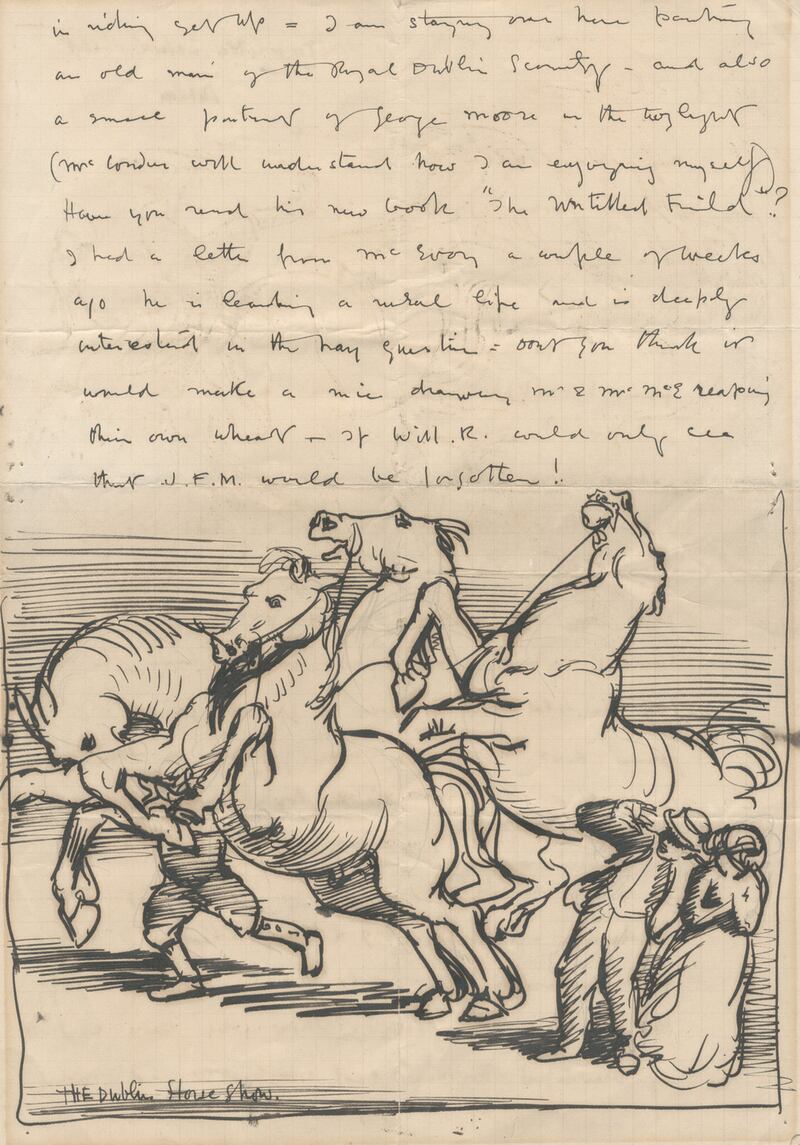 in riding get up = I am staying over here painting
an old man of the Royal Dublin Scounty - and also
a small portrait of George Moore in the twylight
(Mrs Conder will understand how I am enjoying myself)
Have you read his new book "The Untilled Feild"?
I had a letter from McEvoy a couple of weeks
ago he is leading a rural life and is deeply
interested in the hay question = dont you think it
would make a nice drawing Mr & Mrs McE reaping
their own wheat - If Will. R. could only see
that J.F.M. would be forgotten!
THE Dublin Horse Show.